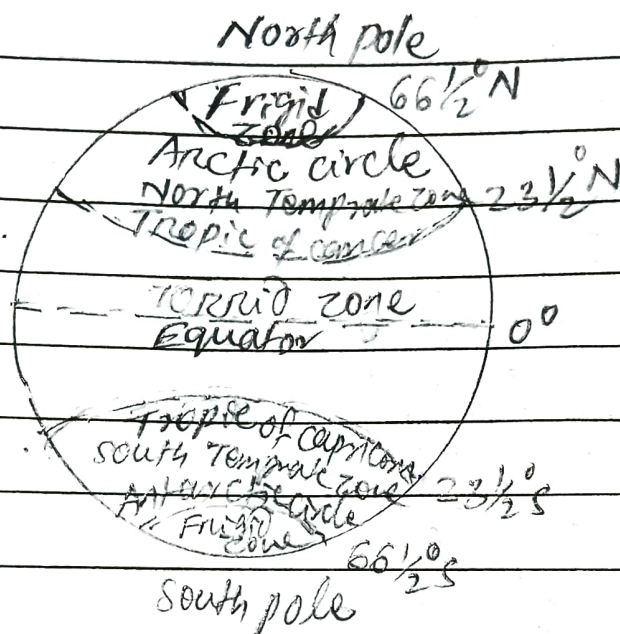 North pole
Frigid 66½° N
zone
Arctic circle
North Temprate zone 23½° N
Tropic of cancer
Torrid zone
Equator 0°
Tropic of capricorn
South Temprate zone 23½° S
Antarctic circle
Frigid
zone
66½° S
South pole